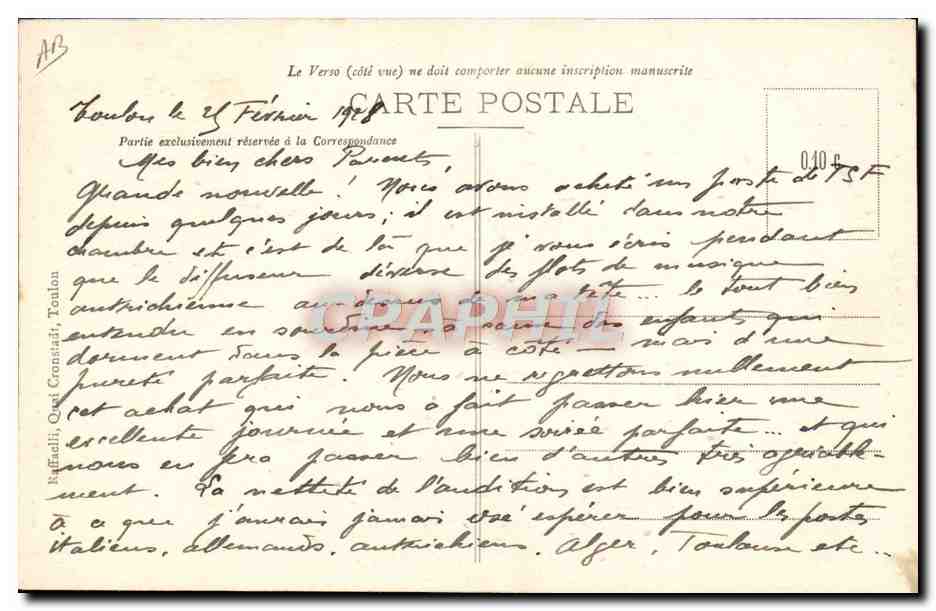 AB
Le Verso (côté vue) ne doit comporter aucune inscription manuscrite
CARTE POSTALE
Toulon le 25 Février 1928
Partie exclusivement réservée à la Correspondance
0,10 c
Mes bien chers Parents,
Grande nouvelle ! Nous avons acheté un poste de TSF
depuis quelques jours ; il est installé dans notre
chambre et c'est de là que je vous écris pendant
que le diffuseur déverse des flots de musique
autrichienne au dessus de ma tête... le tout bien
entendu en sourdine à cause des enfants qui
dorment dans la pièce à côté — mais d'une
pureté parfaite. Nous ne regrettons nullement
cet achat qui nous a fait passer hier une
excellente journée et une soirée parfaite... et qui
nous en fera passer bien d'autres très agréable-
ment. La netteté de l'audition est bien supérieure
à ce que j'aurais jamais osé espérer pour les postes
italiens, allemands, autrichiens, Alger, Toulouse etc...
Raffaelli, Quai Cronstadt, Toulon
CPAPHIL